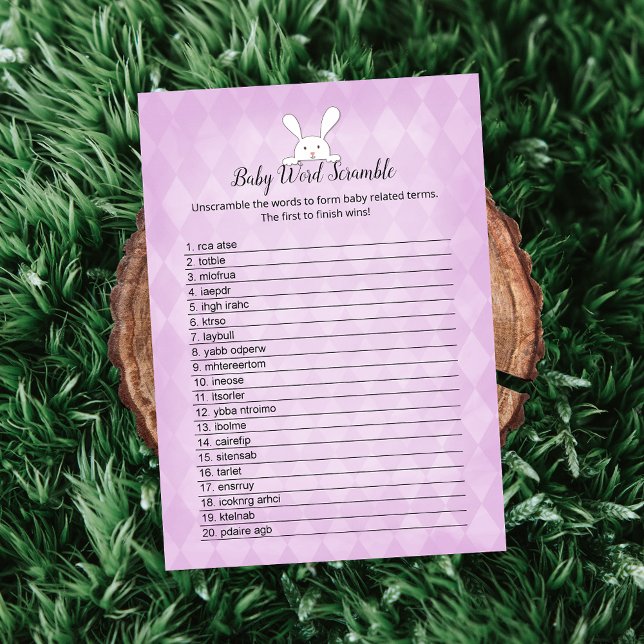 Baby Word Scramble
Unscramble the words to form baby related terms.
The first to finish wins!
1. rca atse
2. totbie
3. mlofrua
4. iaepdr
5. ihgh irahc
6. ktrso
7. laybull
8. yabb odperw
9. mhtereertom
10. ineose
11. ltsorler
12. ybba ntroimo
13. ibolme
14. cairefip
15. sitensab
16. tarlet
17. ensrruy
18. icoknrg arhci
19. ktelnab
20. pdaire agb